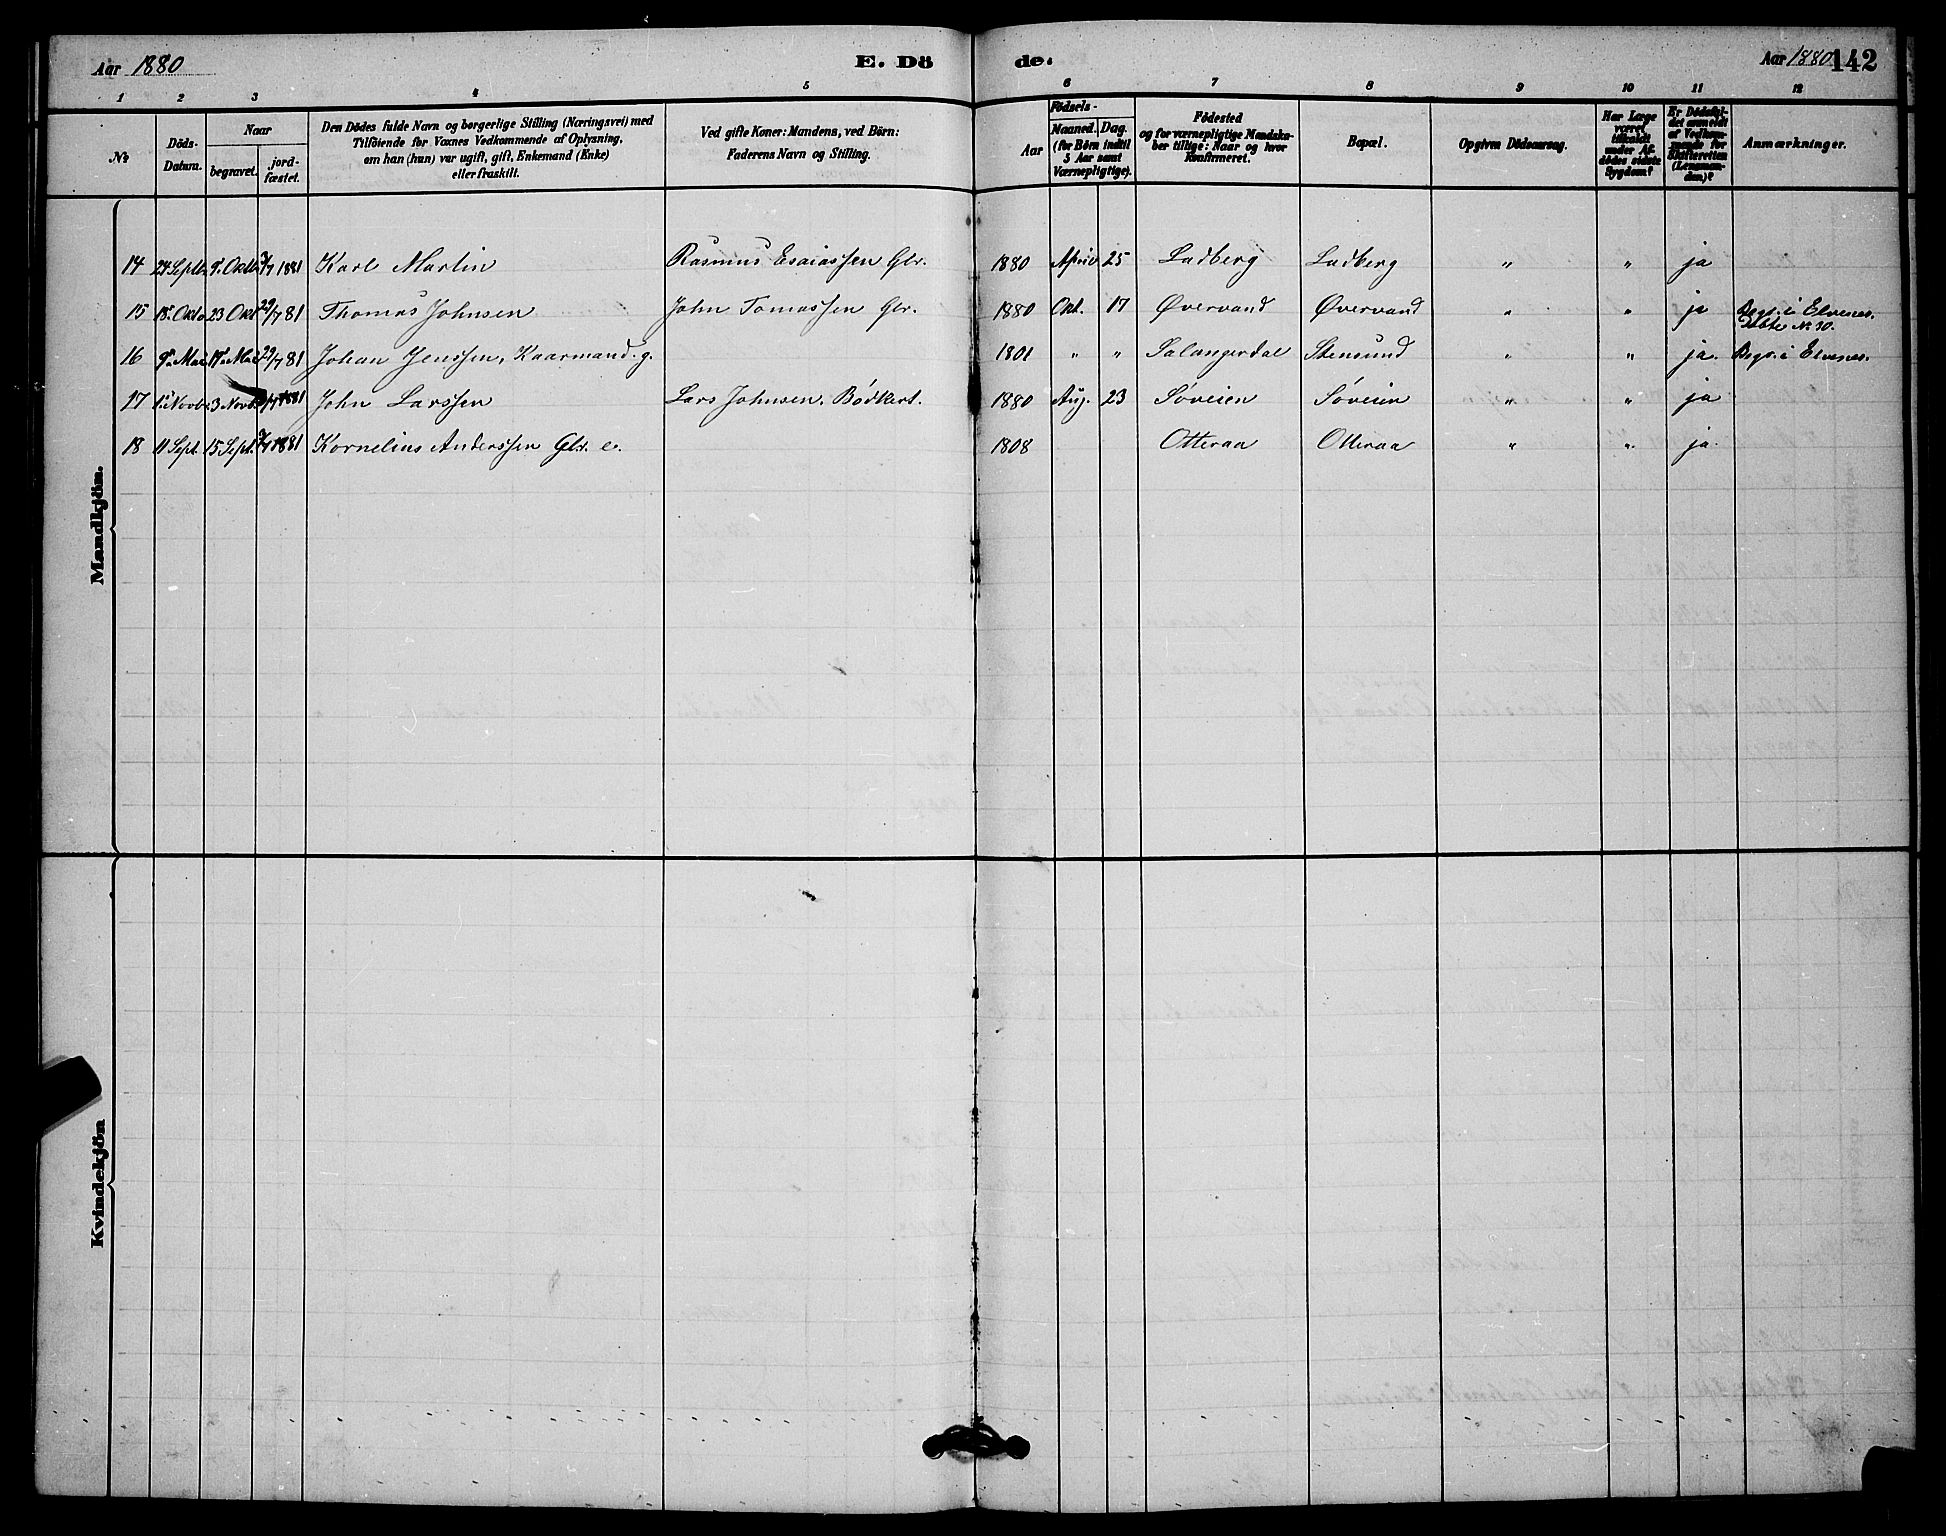 Aar 1880 E. Dö de. Aar 1880 142
1 2 3 4 5 6 7 8 9 10 11 12
№ Döds-Datum. Naar begravet. jord-fæstet. Den Dödes fulde Navn og borgerlige Stilling (Næringsvei) med Tilföiende for Voxnes Vedkommende af Oplysning, om han (hun) var ugift, gift, Enkemand (Enke) eller fraskilt. Ved gifte Koner: Mandens, ved Börn: Faderens Navn og Stilling. Födsels- Aar Maaned. Dag. (for Börn indtil 5 Aar samt Værnepligtige). Födested og for værnepligtige Mandskaber tillige: Naar og hvor konfirmeret. Bopæl. Opgiven Dödsaarsag. Har Læge været tilkaldt under Afdödes sidste Sygdom? Er Dödsfaldet anmeldt af Vedkommende for Skifteretten (Lensmanden)? Anmærkninger.
Mandkjön.
14 24 Septb. 9. Oktb. 1881 Karl Martin Rasmus Esaiassen Gbr. 1880 April 25 Ladberg Ladberg " " ja
15 18. Oktb 23 Okt 29/7 81 Thomas Johnsen John Tomassen Gbr. 1880 Okt. 17 Øvervand Øvervand " " ja Begr. i Elvenes.
Døbte No. 30.
16 9. Mai 17. Mai 29/7 81 Johan Jenssen, Kaarmand. g. 1801 " " Salangsdal Stensund " " ja. Begr. i Elvenes.
17 1. Novbr 3 Novb. 1881 John Larssen Lars Johnsen. Bødkert. 1880 Aug. 23 Søveien Søveien " " ja
18 11 Sept. 15 Sept. 1881 Kornelius Anderssen Gbr. e. 1808 Otteraa Otteraa " " ja.
Kvindekjön